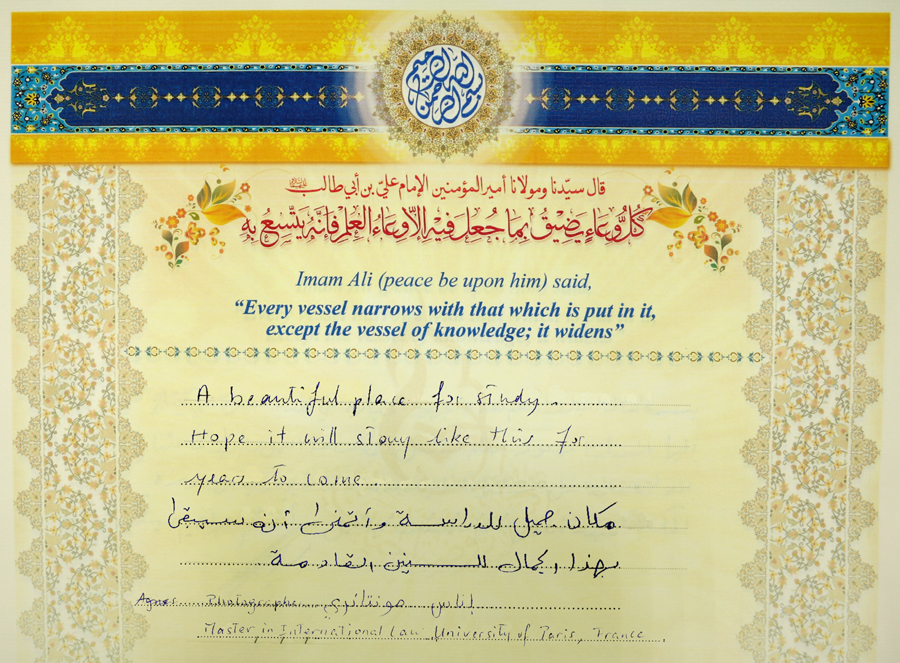 بسم الله الرحمن الرحيم
قال سيّدنا ومولانا أمير المؤمنين الإمام عليّ بن أبي طالب
كُلُّ وِعَاءٍ يَضِيْقُ بِمَا جُعِلَ فِيْهِ إِلَّا وِعَاءُ الْعِلْمِ فَإِنَّهُ يَتَّسِعُ بِهِ
Imam Ali (peace be upon him) said,
“Every vessel narrows with that which is put in it,
except the vessel of knowledge; it widens”
A beautiful place for study.
Hope it will stay like this for
years to come.
مكان جميل للدراسة وأتمنى أن سيبقى
بهذا الجمال للسنين القادمة
Agnes إناس
Master in International Law, University of Paris, France.